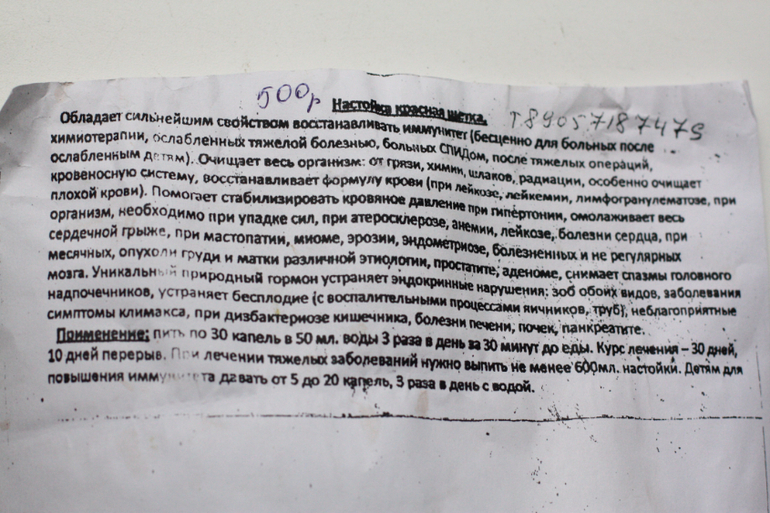 500р Настойка красная щетка. Т89057187479
Обладает сильнейшим свойством восстанавливать иммунитет (бесценно для больных после
химиотерапии, ослабленных тяжелой болезнью, больных СПИДом, после тяжелых операций,
ослабленным детям). Очищает весь организм: от грязи, химии, шлаков, радиации, особенно очищает
кровеносную систему, восстанавливает формулу крови (при лейкозе, лейкемии, лимфогранулематозе, при
плохой крови). Помогает стабилизировать кровяное давление при гипертонии, омолаживает весь
организм, необходимо при упадке сил, при атеросклерозе, анемии, лейкозе, болезни сердца, при
сердечной грыже, при мастопатии, миоме, эрозии, эндометриозе, болезненных и не регулярных
месячных, опухоли груди и матки различной этиологии, простатите, аденоме, снимает спазмы головного
мозга. Уникальный природный гормон устраняет эндокринные нарушения: зоб обоих видов, заболевания
надпочечников, устраняет бесплодие (с воспалительными процессами яичников, труб), неблагоприятные
симптомы климакса, при дизбактериозе кишечника, болезни печени, почек, панкреатите.
Применение: пить по 30 капель в 50 мл. воды 3 раза в день за 30 минут до еды. Курс лечения – 30 дней,
10 дней перерыв. При лечении тяжелых заболеваний нужно выпить не менее 600мл. настойки. Детям для
повышения иммунитета давать от 5 до 20 капель, 3 раза в день с водой.